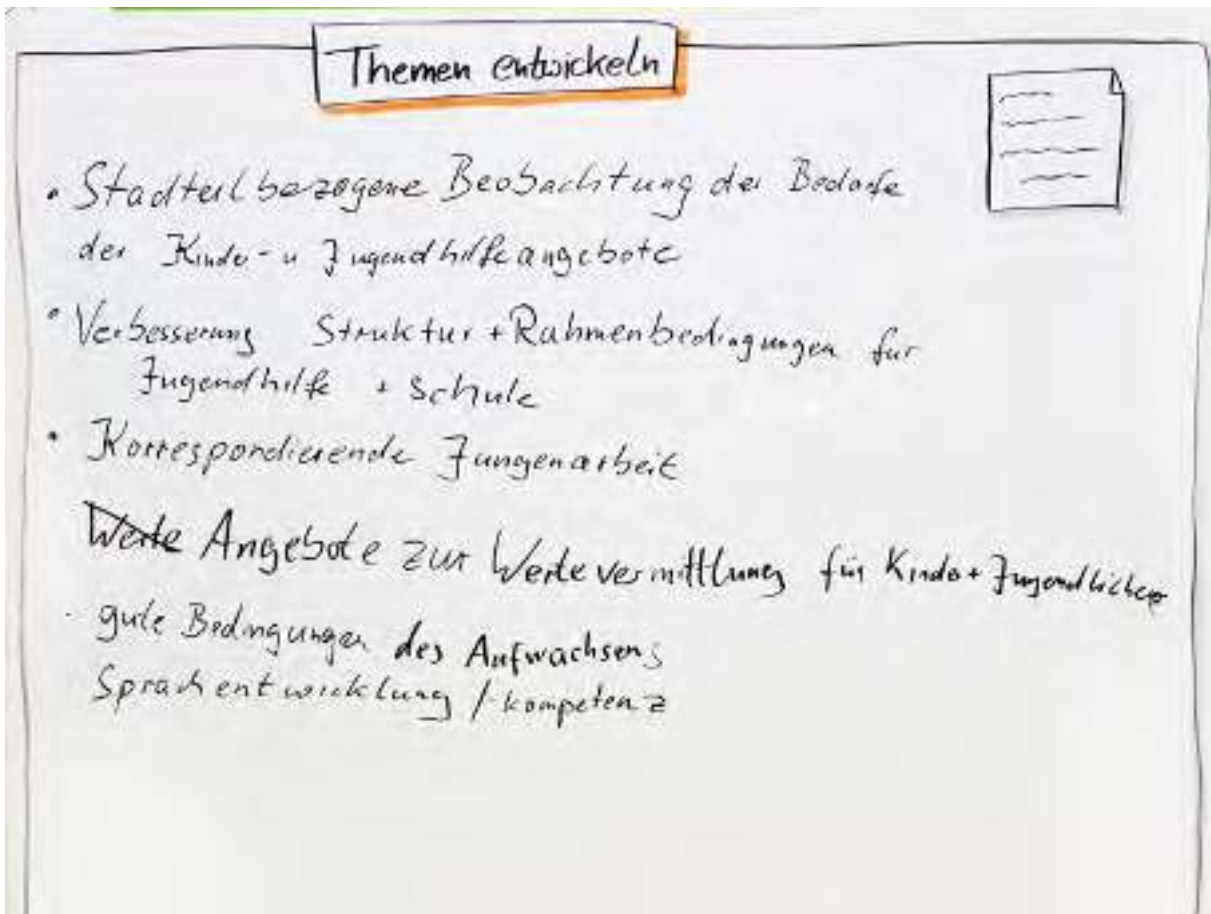 Themen entwickeln
• Stadtteilbezogene Beobachtung der Bedarfe
der Kinder- u Jugendhilfeangebote
• Verbesserung Struktur + Rahmenbedingungen für
Jugendhilfe + Schule
• Korrespondierende Jungenarbeit
Werte Angebote zur Wertevermittlung für Kinder + Jugendliche
· gute Bedingungen des Aufwachsens
Sprachentwicklung / -kompetenz